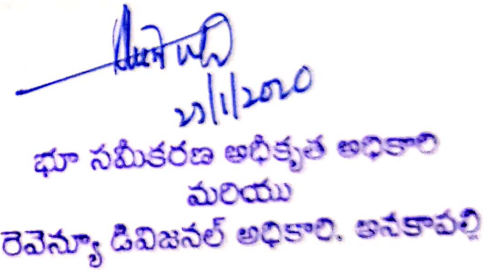 23/1/2020
భూ సమీకరణ అధీకృత అధికారి
మరియు
రెవెన్యూ డివిజనల్ అధికారి, అనకాపల్లి